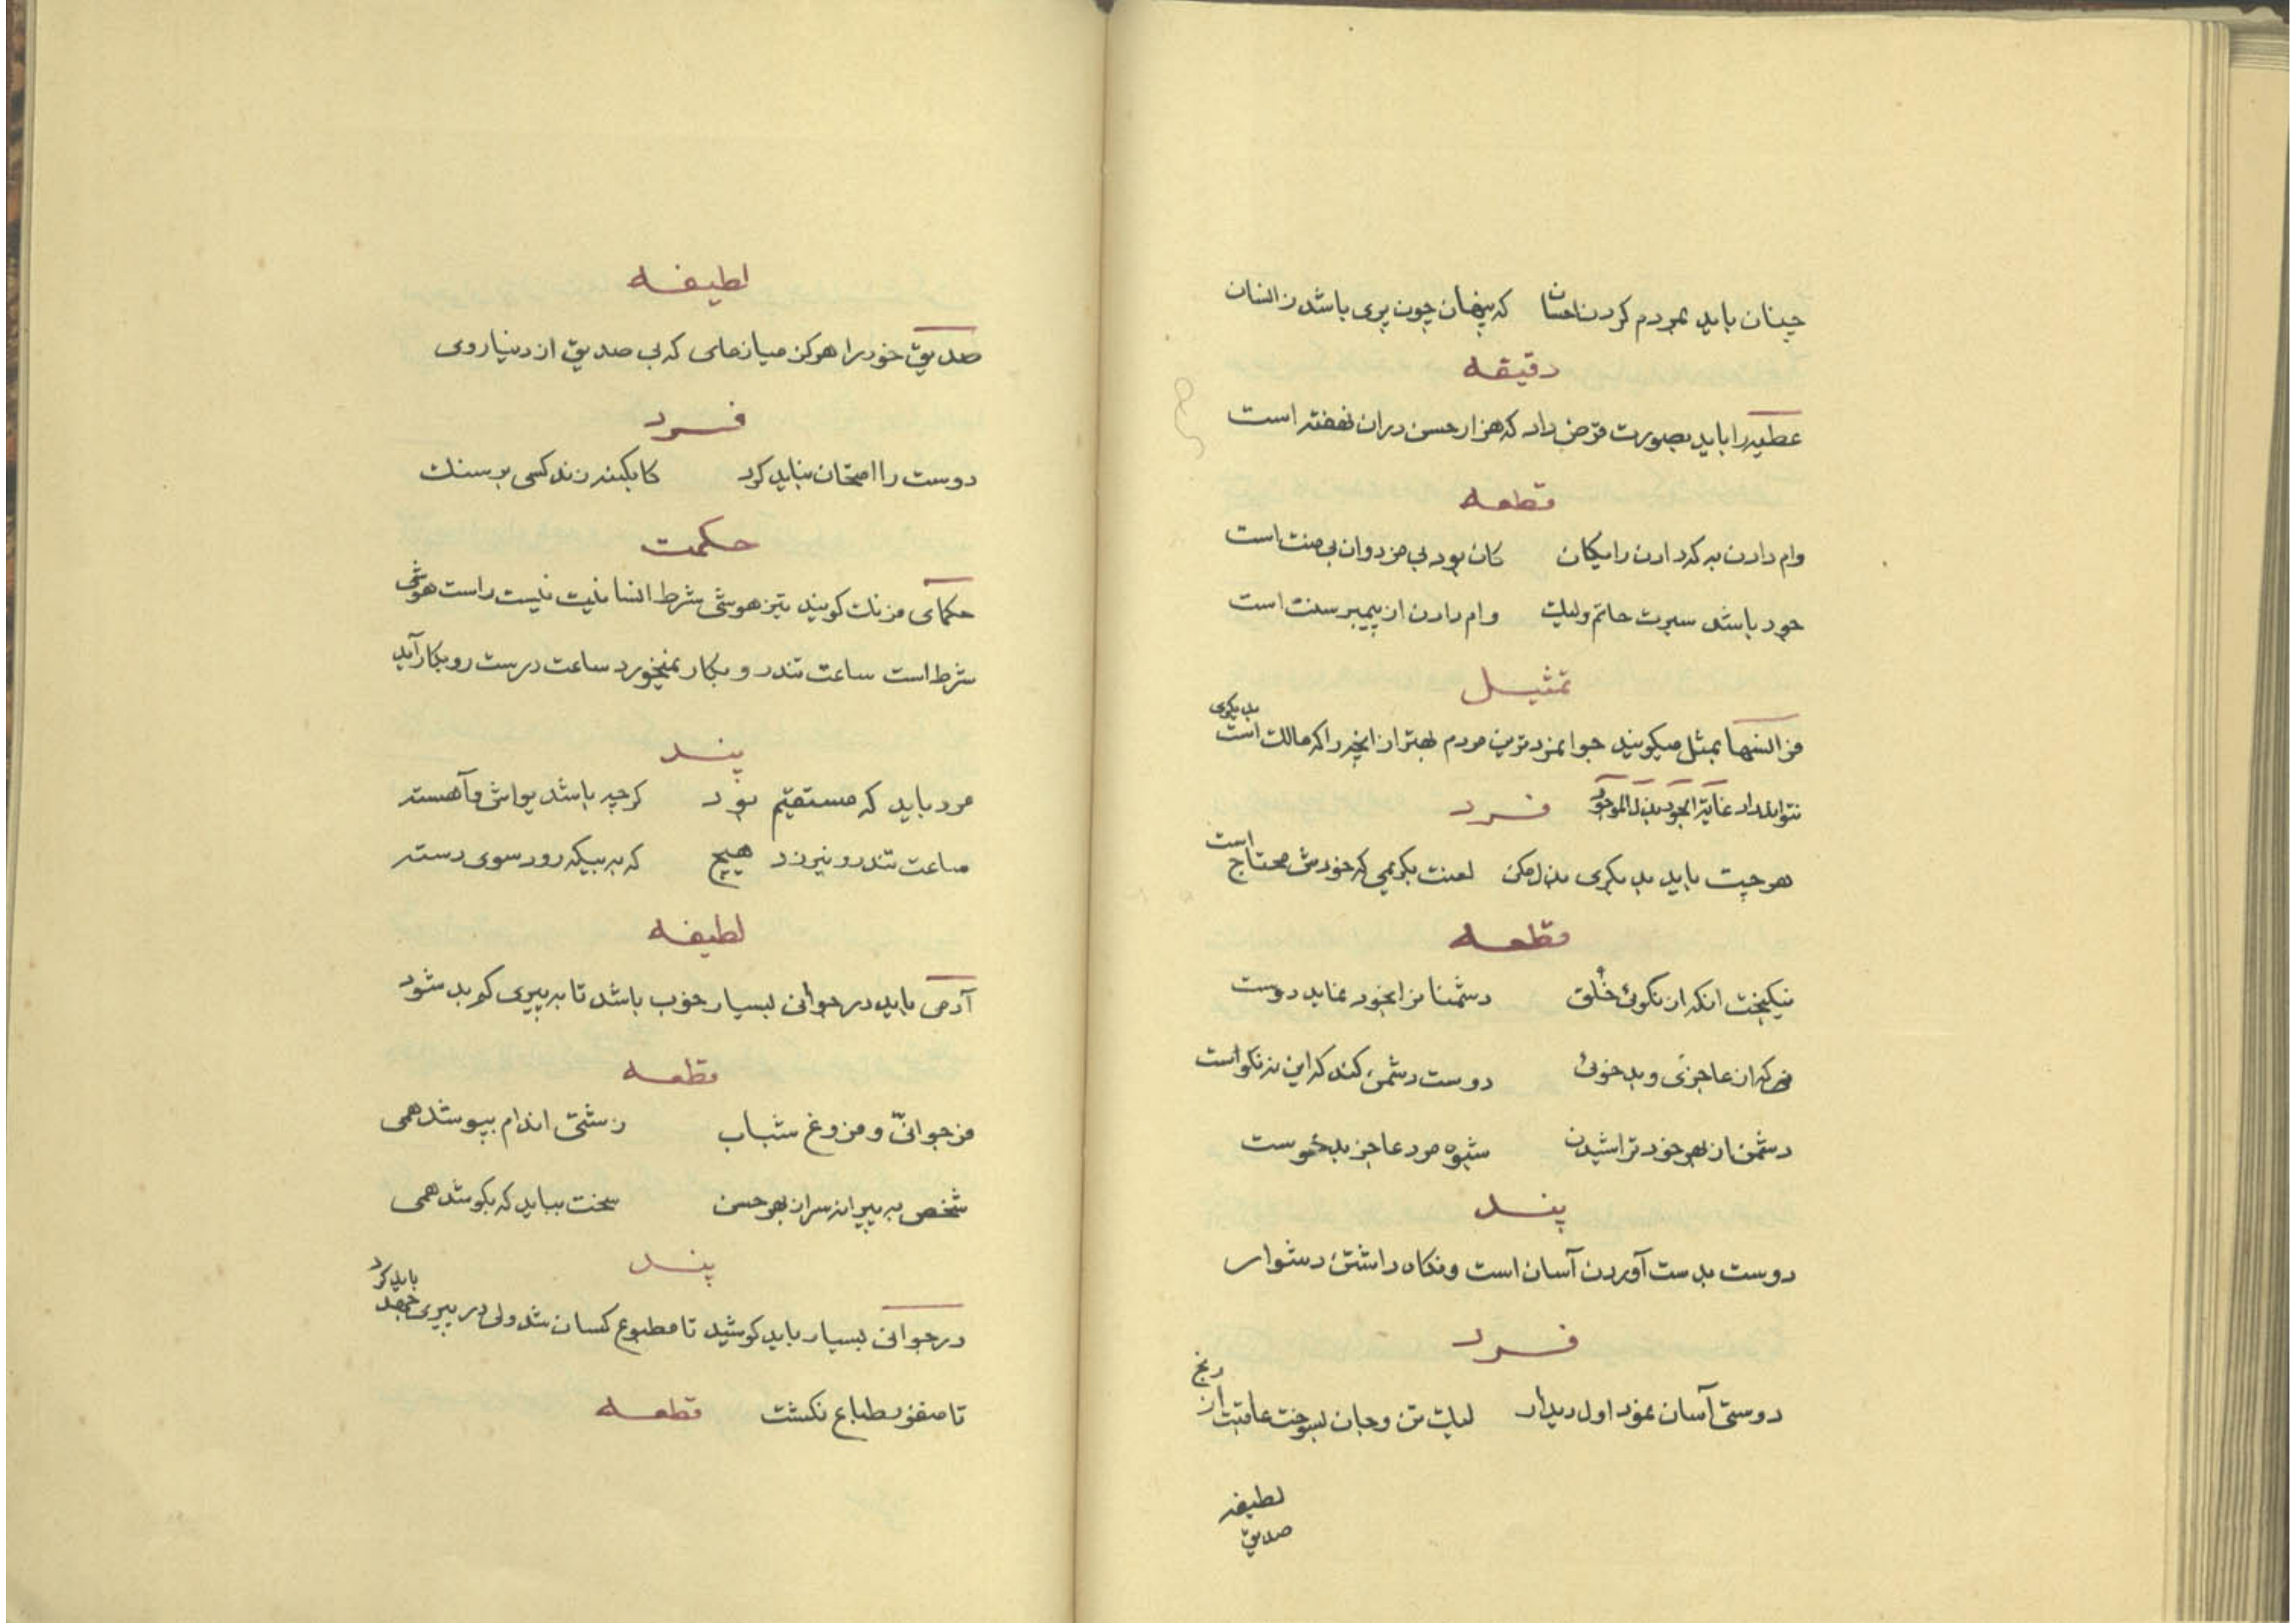 چنان باید بمردم کردن احسان که پنهان چون پری باشد ز انسان
دقیقه
عطیه را باید بصورت قرض داد که هزار حسن در ان نهفته است
قطعه
وام دادن به که دادن رایکان کان بود بی مزد وان بی منت است
جود باشد سیرت حاتم ولیک وام دادن از پیمبر سنت است
تمثیل
فرانسها بمثل میکویند جوانمردترین مردم بهتر از انچه را که مالک است بدیکری
نتواند داد غایة الجود بذل الموجود فرد
هر چیت باید بدیکری بذل مکن لعنت بکریمی که خودش محتاج است
قطعه
نیکبخت انکه از نکوئی خُلق دشمنانرا بخود نماید دوست
هر که از عاجزی و بدخوئی دوست دشمن کند که این نه نکو است
دشمن از بهر خود تراشیدن شیوه مرد عاجز بدخوست
پند
دوست بدست آوردن آسان است و نکاه داشتن دشوار
فرد
دوستی آسان نمود اول دیدار لیک تن و جان بسوخت عاقبت از رنج
لطیفه
صدیق
لطیفه
صدیق خود را هرکز میازمای که بی صدیق از دنیا روی
فرد
دوست را امتحان نباید کرد کابکینه زند کسی بر سنک
حکمت
حکمای فرنک کویند تیز هوشی شرط انسانیت نیست راست هوشی
شرط است ساعت تندرو بکار نمیخورد ساعت درست رو بکار آید
پند
مرد باید که مستقیم بود کرچه باشد یواش و آهسته
ساعت تندرو نیرزد هیچ که به بیکه رود سوی دسته
لطیفه
آدمی باید در جوانی بسیار خوب باشد تا به پیری کم بد شود
قطعه
فر جوانیّ و فروغ شباب زشتی اندام بپوشد همی
شخص به پیرانه سر از بهر حسن سخت بباید که بکوشد همی
پند
در جوانی بسیار باید کوشید تا مطبوع کسان شد ولی در پیری جهد باید کرد
تا منفور طباع نکشت قطعه